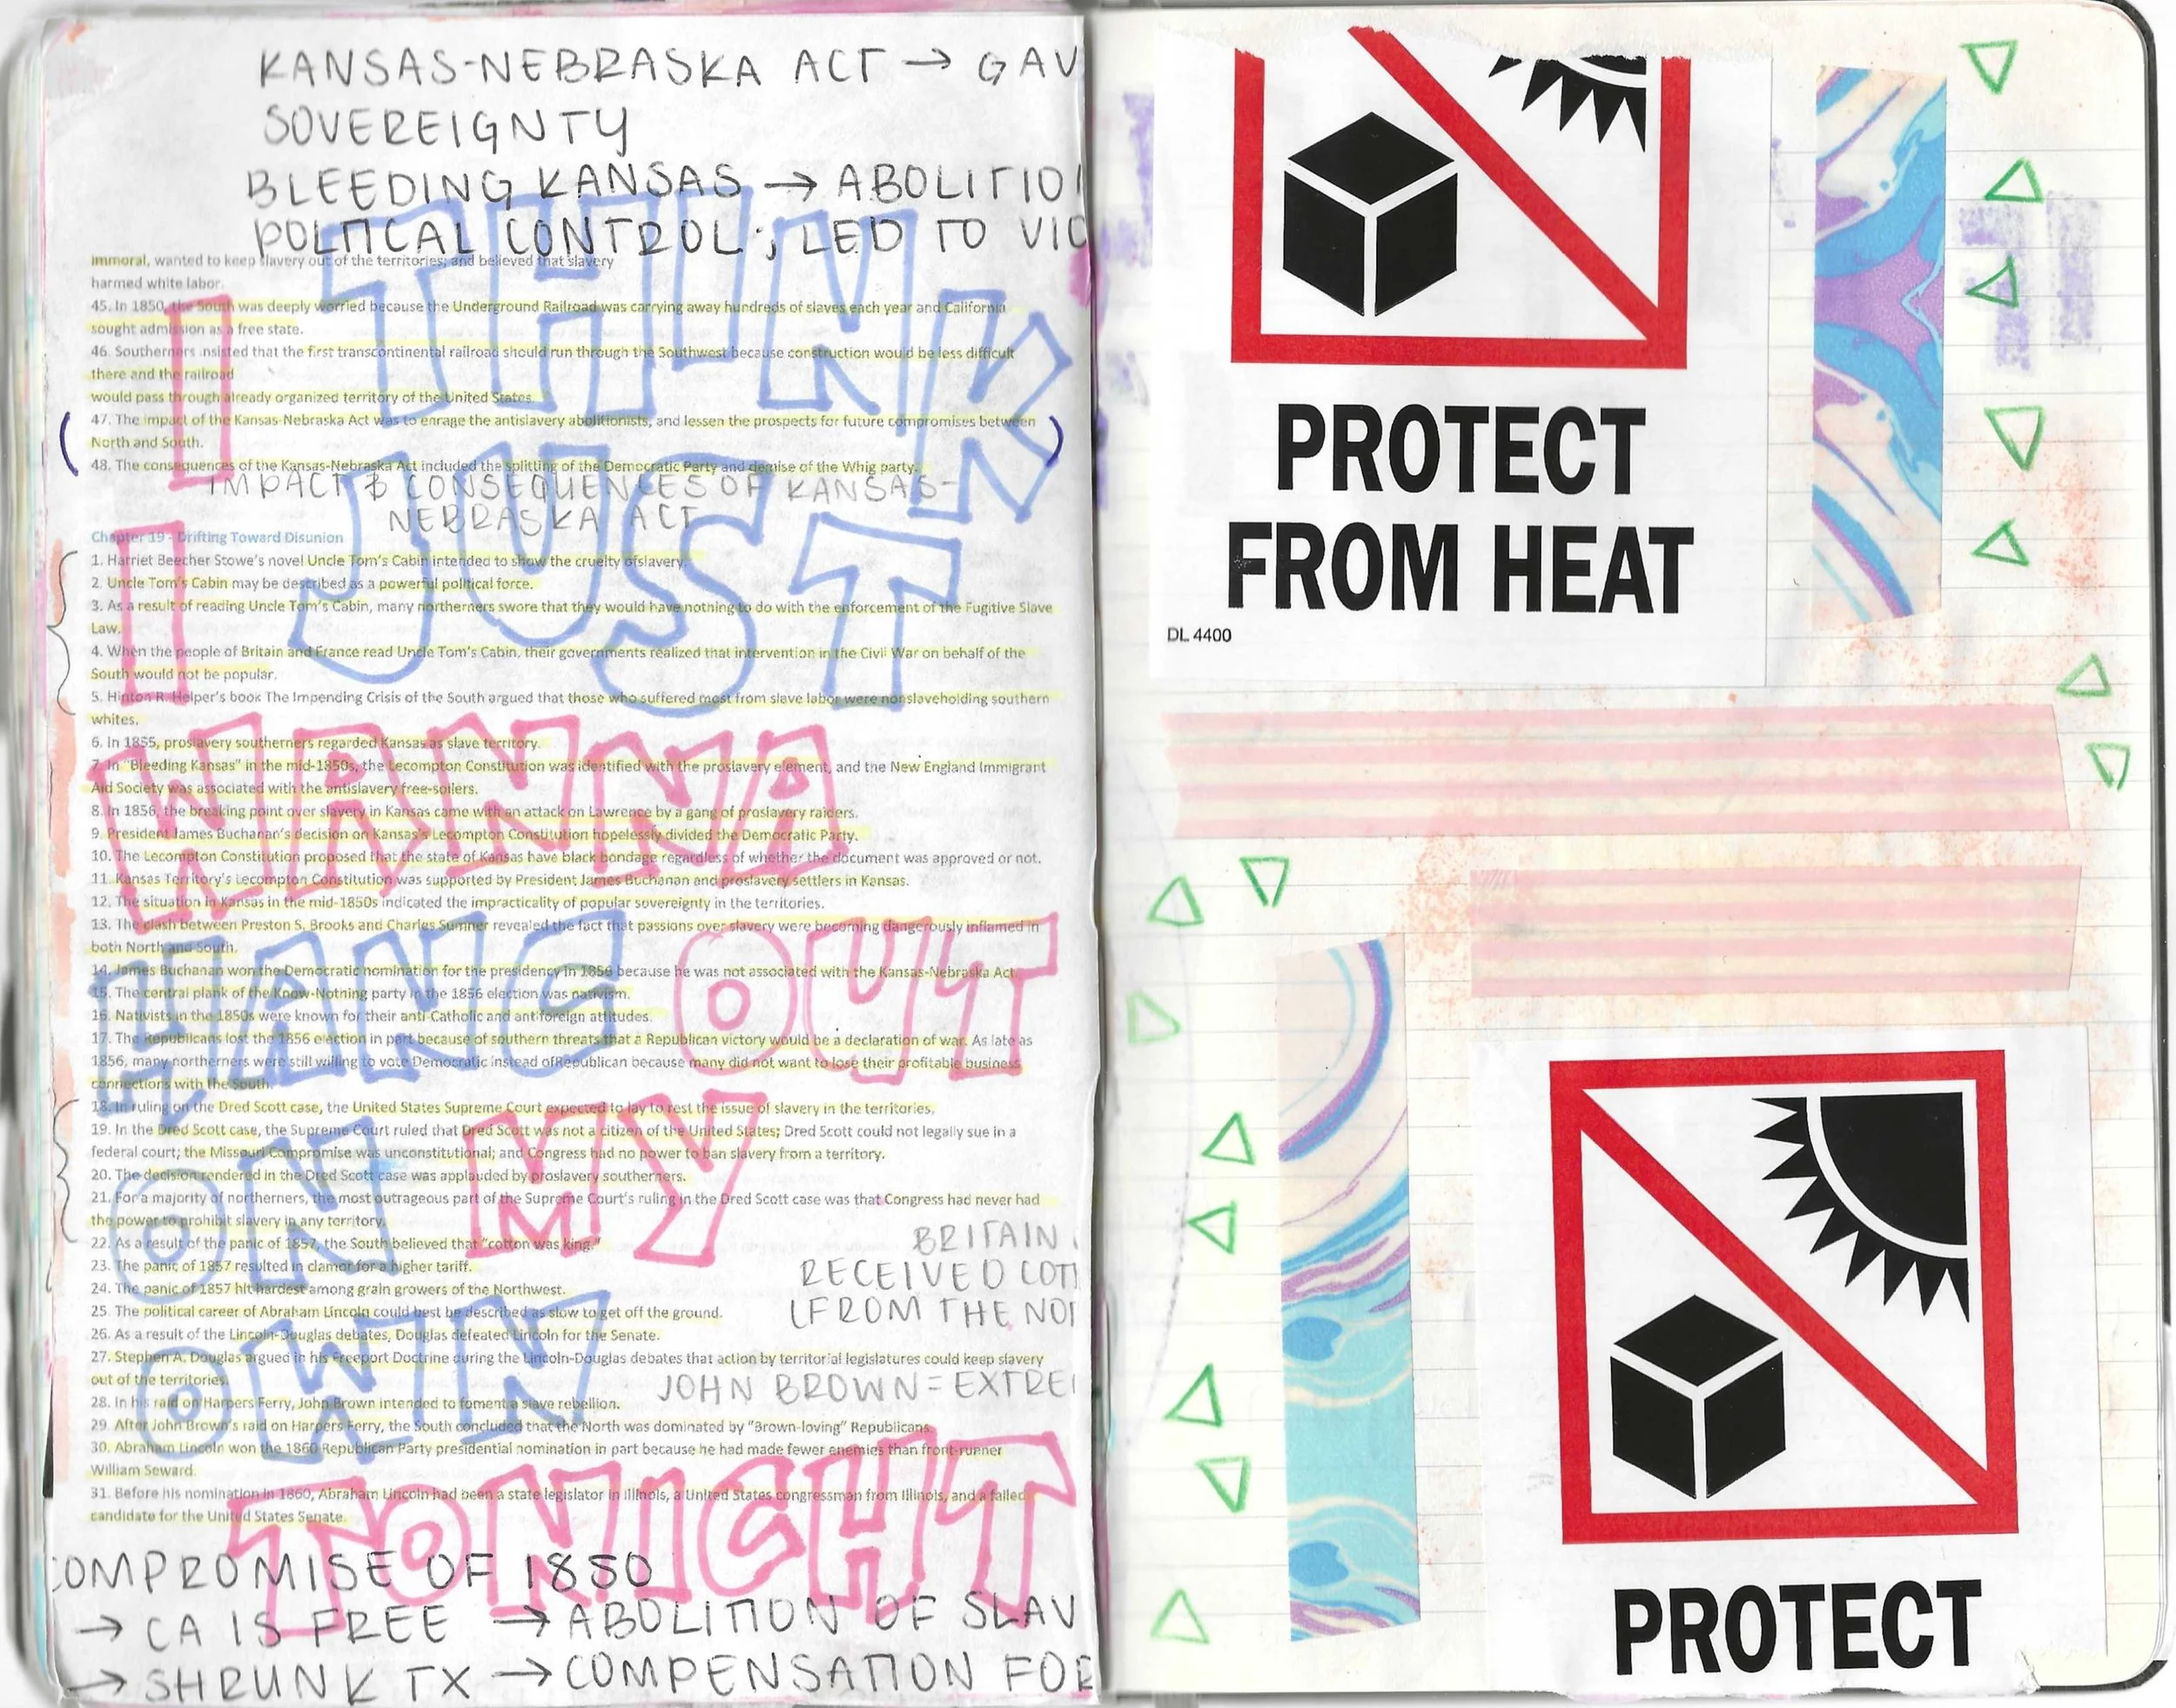 KANSAS-NEBRASKA ACT → GAV
SOVEREIGNTY
BLEEDING KANSAS → ABOLITIO
POLITICAL CONTROL; LED TO VIO
immoral, wanted to keep slavery out of the territories; and believed that slavery
harmed white labor.
45. In 1850, the South was deeply worried because the Underground Railroad was carrying away hundreds of slaves each year and California
sought admission as a free state.
46. Southerners insisted that the first transcontinental railroad should run through the Southwest because construction would be less difficult
there and the railroad
would pass through already organized territory of the United States.
47. The impact of the Kansas-Nebraska Act was to enrage the antislavery abolitionists, and lessen the prospects for future compromises between
North and South.
48. The consequences of the Kansas-Nebraska Act included the splitting of the Democratic Party and demise of the Whig party.
IMPACT & CONSEQUENCES OF KANSAS-
NEBRASKA ACT
Chapter 19 - Drifting Toward Disunion
1. Harriet Beecher Stowe's novel Uncle Tom's Cabin intended to show the cruelty ofslavery.
2. Uncle Tom's Cabin may be described as a powerful political force.
3. As a result of reading Uncle Tom's Cabin, many northerners swore that they would have nothing to do with the enforcement of the Fugitive Slave
Law.
4. When the people of Britain and France read Uncle Tom's Cabin, their governments realized that intervention in the Civil War on behalf of the
South would not be popular.
5. Hinton R. Helper's book The Impending Crisis of the South argued that those who suffered most from slave labor were nonslaveholding southern
whites.
6. In 1855, proslavery southerners regarded Kansas as slave territory.
7. In "Bleeding Kansas" in the mid-1850s, the Lecompton Constitution was identified with the proslavery element, and the New England Immigrant
Aid Society was associated with the antislavery free-soilers.
8. In 1856, the breaking point over slavery in Kansas came with an attack on Lawrence by a gang of proslavery raiders.
9. President James Buchanan's decision on Kansas's Lecompton Constitution hopelessly divided the Democratic Party.
10. The Lecompton Constitution proposed that the state of Kansas have black bondage regardless of whether the document was approved or not.
11. Kansas Territory's Lecompton Constitution was supported by President James Buchanan and proslavery settlers in Kansas.
12. The situation in Kansas in the mid-1850s indicated the impracticality of popular sovereignty in the territories.
13. The clash between Preston S. Brooks and Charles Sumner revealed the fact that passions over slavery were becoming dangerously inflamed in
both North and South.
14. James Buchanan won the Democratic nomination for the presidency in 1856 because he was not associated with the Kansas-Nebraska Act.
15. The central plank of the Know-Nothing party in the 1856 election was nativism.
16. Nativists in the 1850s were known for their anti-Catholic and antiforeign attitudes.
17. The Republicans lost the 1856 election in part because of southern threats that a Republican victory would be a declaration of war. As late as
1856, many northerners were still willing to vote Democratic instead ofRepublican because many did not want to lose their profitable business
connections with the South.
18. In ruling on the Dred Scott case, the United States Supreme Court expected to lay to rest the issue of slavery in the territories.
19. In the Dred Scott case, the Supreme Court ruled that Dred Scott was not a citizen of the United States; Dred Scott could not legally sue in a
federal court; the Missouri Compromise was unconstitutional; and Congress had no power to ban slavery from a territory.
20. The decision rendered in the Dred Scott case was applauded by proslavery southerners.
21. For a majority of northerners, the most outrageous part of the Supreme Court's ruling in the Dred Scott case was that Congress had never had
the power to prohibit slavery in any territory.
22. As a result of the panic of 1857, the South believed that "cotton was king."
23. The panic of 1857 resulted in clamor for a higher tariff.
24. The panic of 1857 hit hardest among grain growers of the Northwest.
25. The political career of Abraham Lincoln could best be described as slow to get off the ground.
26. As a result of the Lincoln-Douglas debates, Douglas defeated Lincoln for the Senate.
27. Stephen A. Douglas argued in his Freeport Doctrine during the Lincoln-Douglas debates that action by territorial legislatures could keep slavery
out of the territories.
28. In his raid on Harpers Ferry, John Brown intended to foment a slave rebellion.
29. After John Brown's raid on Harpers Ferry, the South concluded that the North was dominated by "Brown-loving" Republicans.
30. Abraham Lincoln won the 1860 Republican Party presidential nomination in part because he had made fewer enemies than front-runner
William Seward.
31. Before his nomination in 1860, Abraham Lincoln had been a state legislator in Illinois, a United States congressman from Illinois, and a failed
candidate for the United States Senate.
BRITAIN
RECEIVED COTT
(FROM THE NOR
JOHN BROWN = EXTREM
COMPROMISE OF 1850
→ CA IS FREE → ABOLITION OF SLAV
→ SHRUNK TX → COMPENSATION FOR
I THINK
I JUST
WANNA
HANG OUT
ON MY
OWN
TONIGHT
PROTECT
FROM HEAT
DL 4400
PROTECT